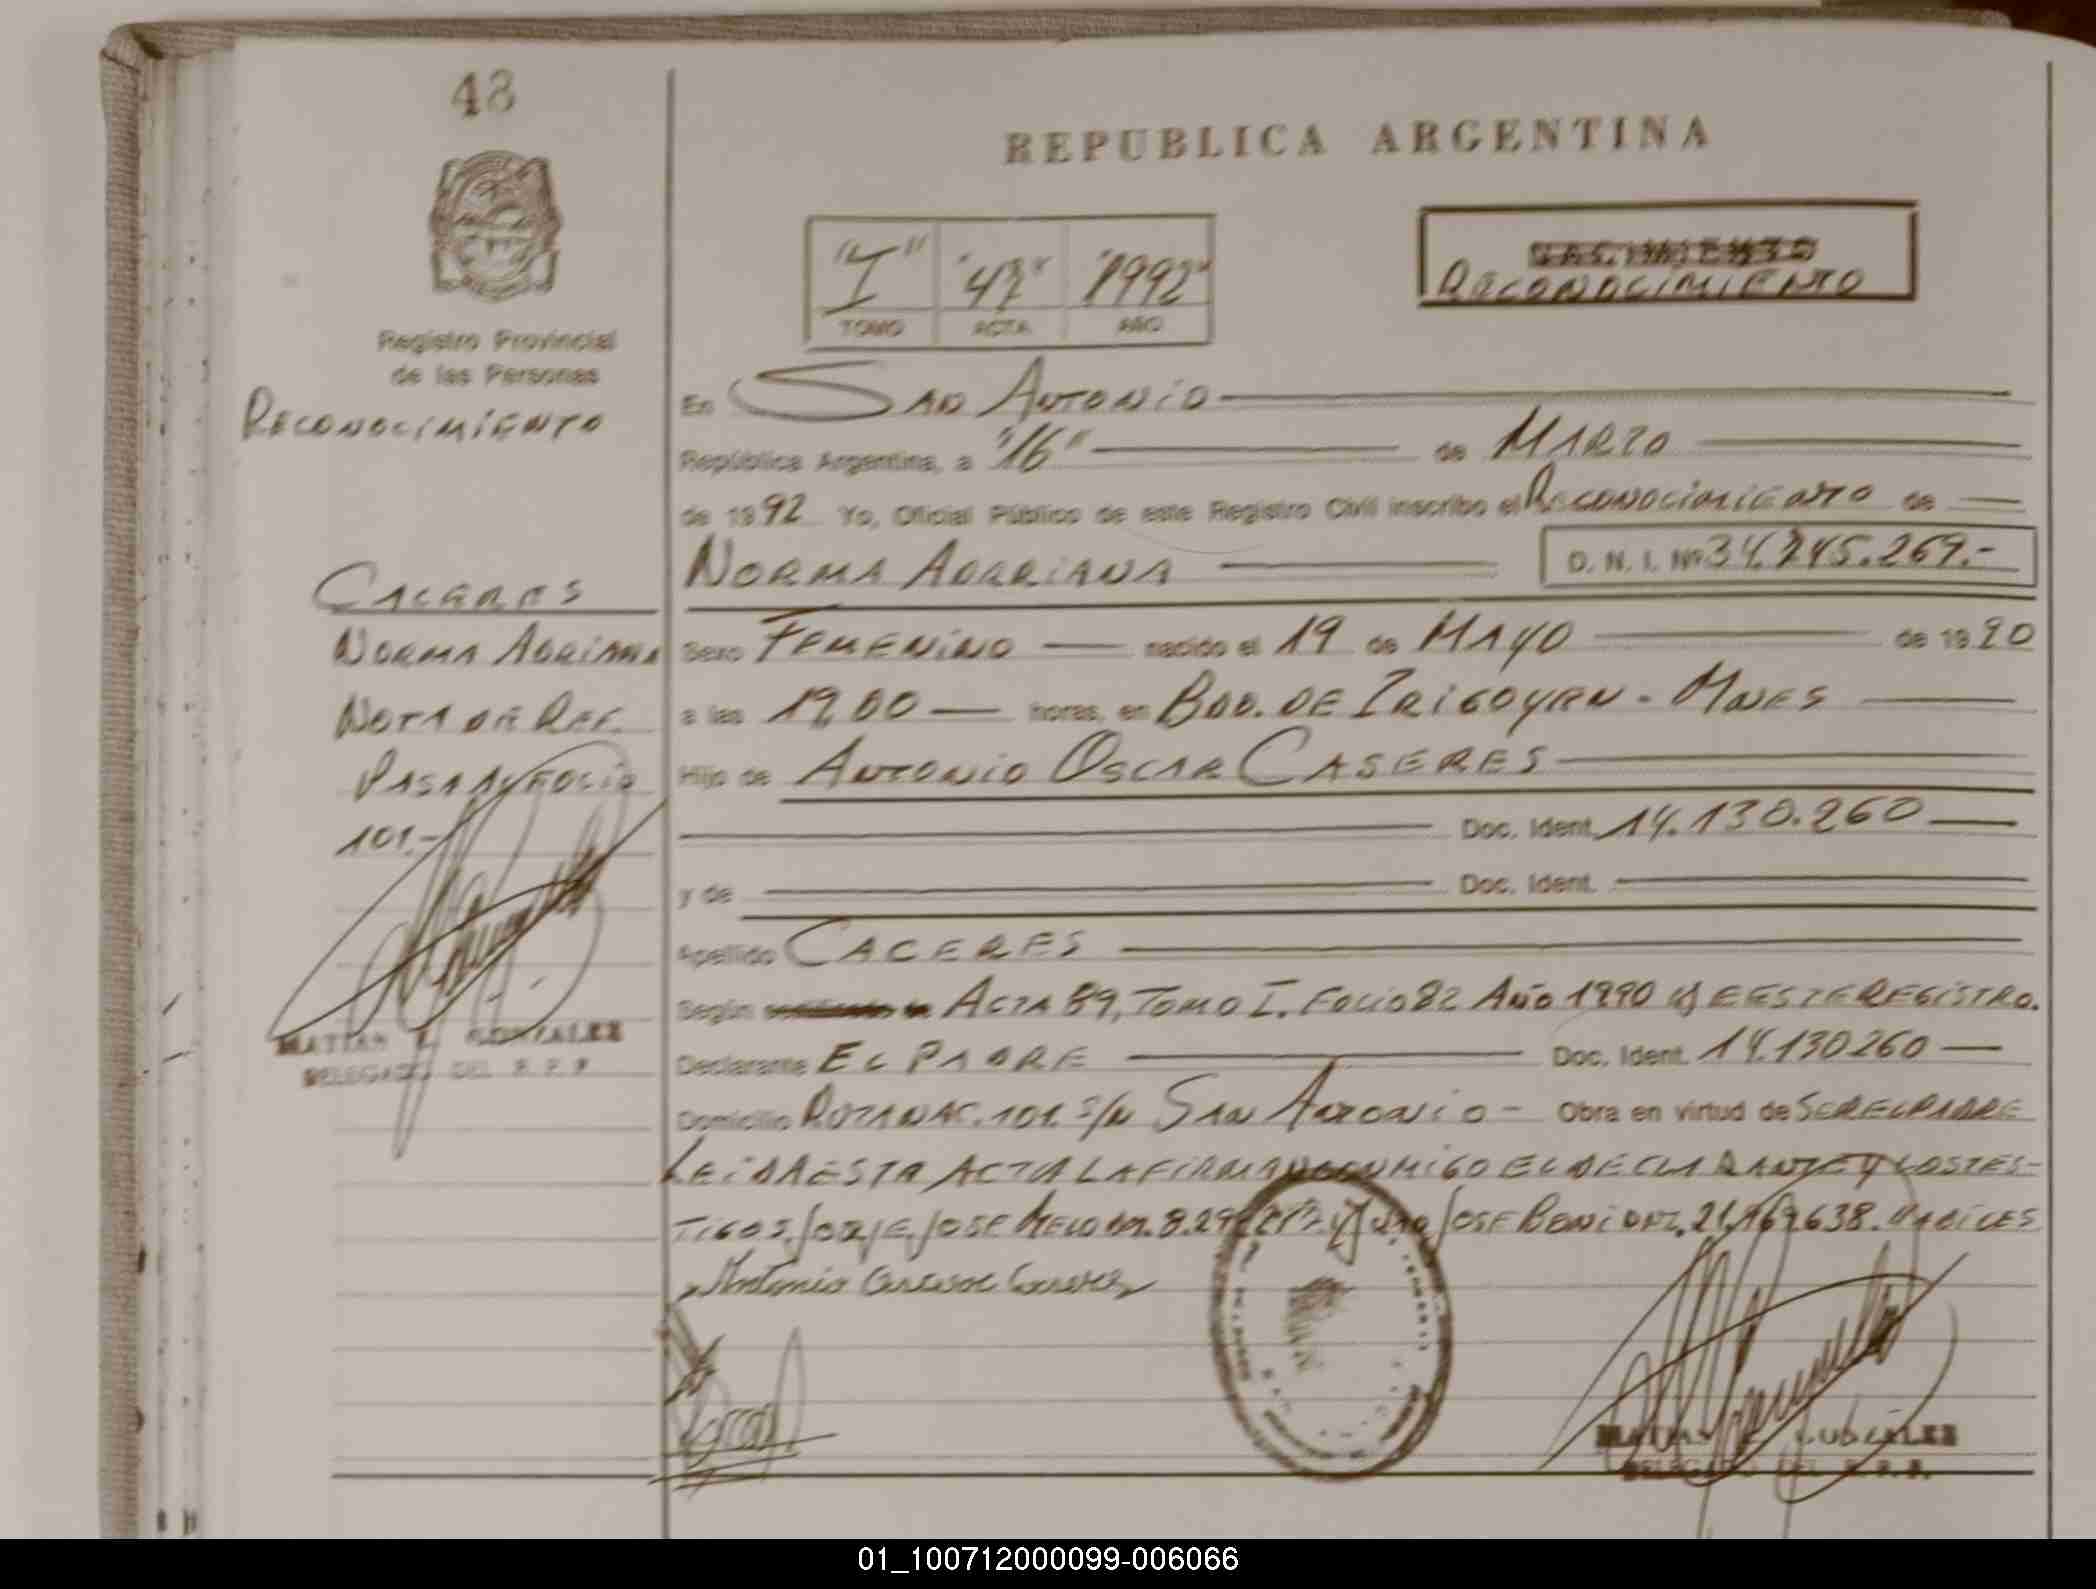 48
REPUBLICA ARGENTINA
"I" "47" "1992"
TOMO ACTA AÑO
NACIMIENTO
RECONOCIMIENTO
Registro Provincial
de las Personas
RECONOCIMIENTO
En SAN ANTONIO
República Argentina, a "16" de MARZO
de 1992 Yo, Oficial Público de este Registro Civil inscribo el RECONOCIMIENTO de
NORMA ADRRIANA D. N. I. Nº 34.245.269.-
CACERES
NORMA ADRIANA
NOTA DE REF.
PASA A FOLIO
101.-
Sexo FEMENINO nacido el 19 de MAYO de 1990
a las 19,00 horas, en BDO. DE IRIGOYEN - MNES
Hijo de ANTONIO OSCAR CASERES
Doc. Ident. 14.130.260
y de Doc. Ident.
Apellido CACERES
Según ACTA 89, TOMO I. FOLIO 82 AÑO 1990 DE ESTE REGISTRO.
Declarante EL PADRE Doc. Ident. 14.130260
Domicilio RUTA NAC. 101. S/N SAN ANTONIO - Obra en virtud de SER EL PADRE
LEIDA ESTA ACTA LA FIRMAN CONMIGO EL DECLARANTE Y LOS TES-
TIGOS, JORJE JOSE MELO DNI. 8.29 Y JOSE BENI DNI. 21.169.638.
Antonio Caseres
MATIAS GONZALEZ
DELEGADO DEL R. P. P.
MATIAS GONZALEZ
DELEGADO DEL R. P. P.
01_100712000099-006066